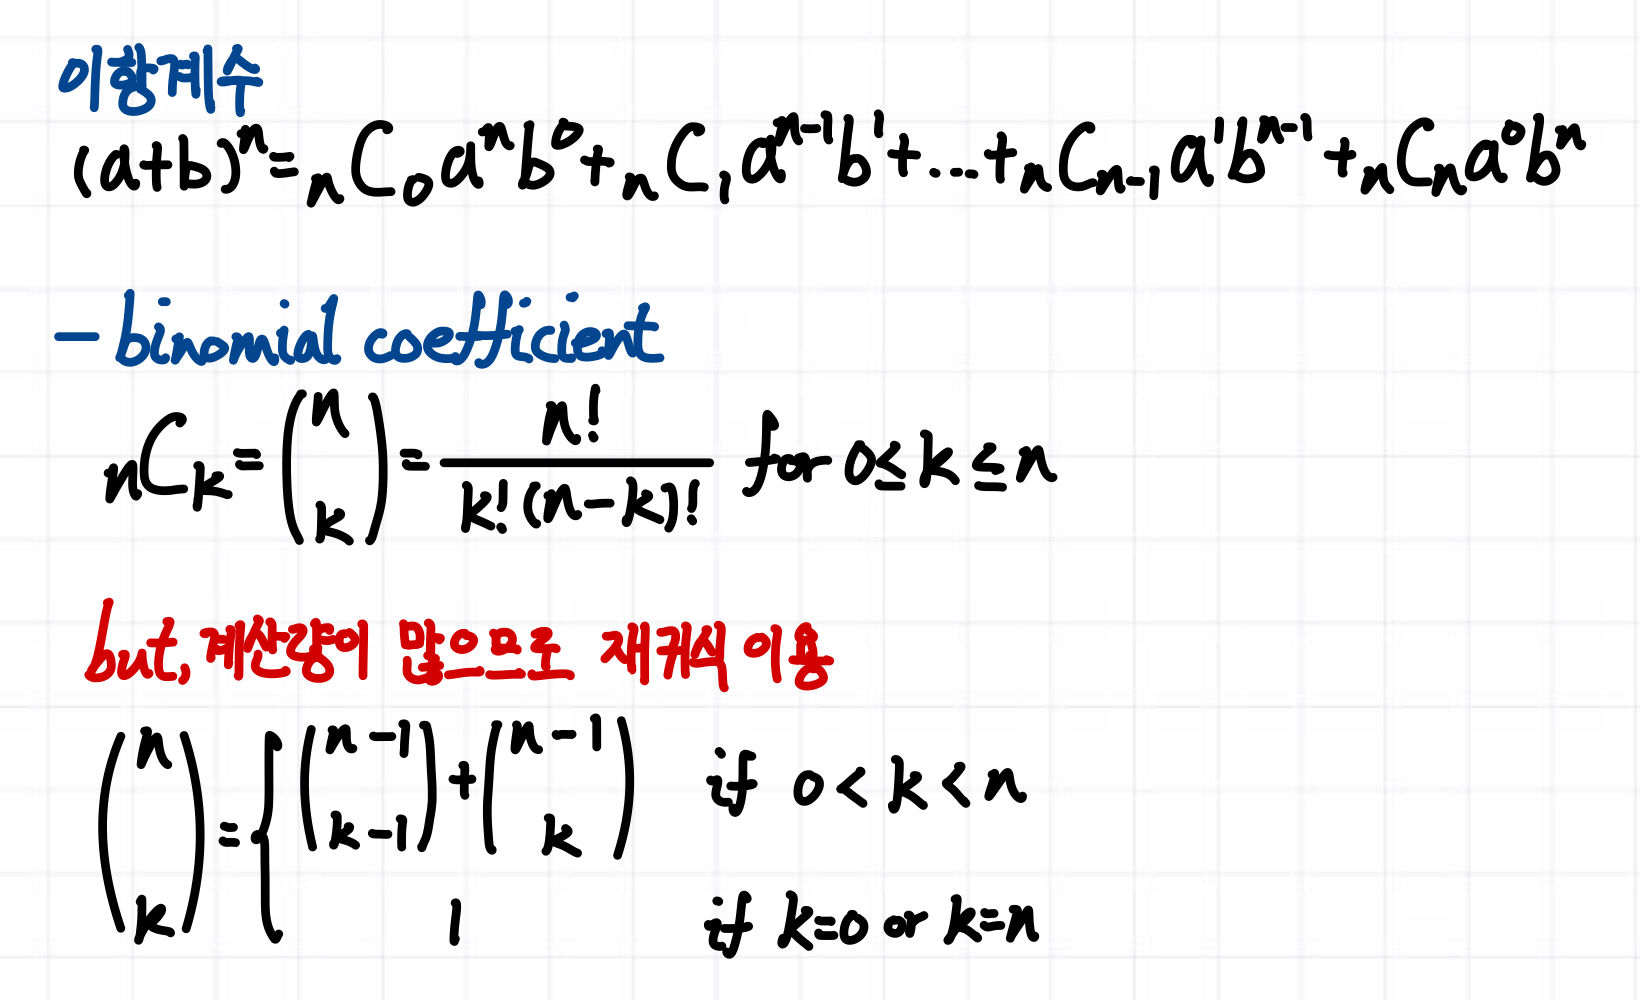 이항계수
(a+b)^n = nC0 a^n b^0 + nC1 a^(n-1) b^1 + ... + nCn-1 a^1 b^(n-1) + nCn a^0 b^n
- binomial coefficient
nCk = (n k) = n! / k!(n-k)! for 0≤k≤n
but, 계산량이 많으므로 재귀식 이용
(n k) = { (n-1 k-1) + (n-1 k) if 0<k<n
1 if k=0 or k=n